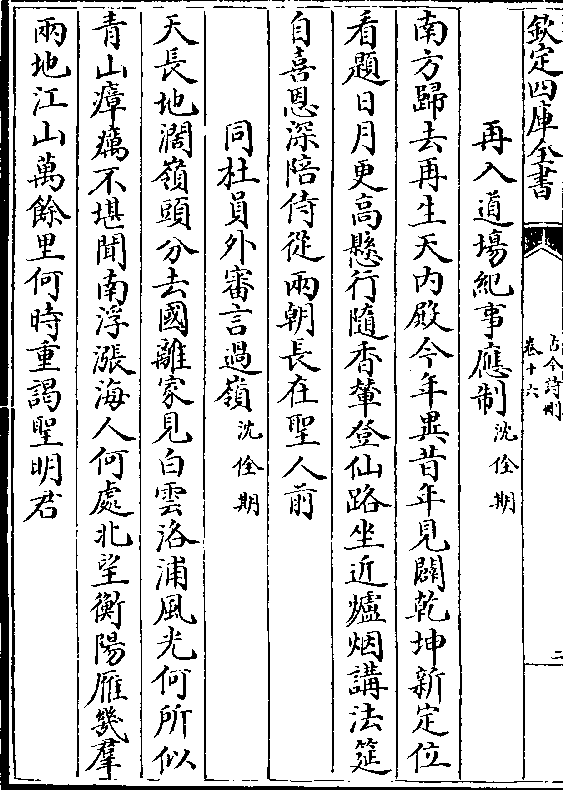 欽定四庫全書
古今詩刪
卷十六
二
再入道塲紀事應制
沈佺期
南方歸去再生天内殿今年異昔年見闢乾坤新定位
看題日月更高懸行隨香輦登仙路坐近爐烟講法筵
自喜恩深陪侍從兩朝長在聖人前
同杜員外審言過嶺
沈佺期
天長地濶嶺頭分去國離家見白雲洛浦風光何所似
青山瘴癘不堪聞南浮漲海人何處北望衡陽雁幾羣
兩地江山萬餘里何時重謁聖明君